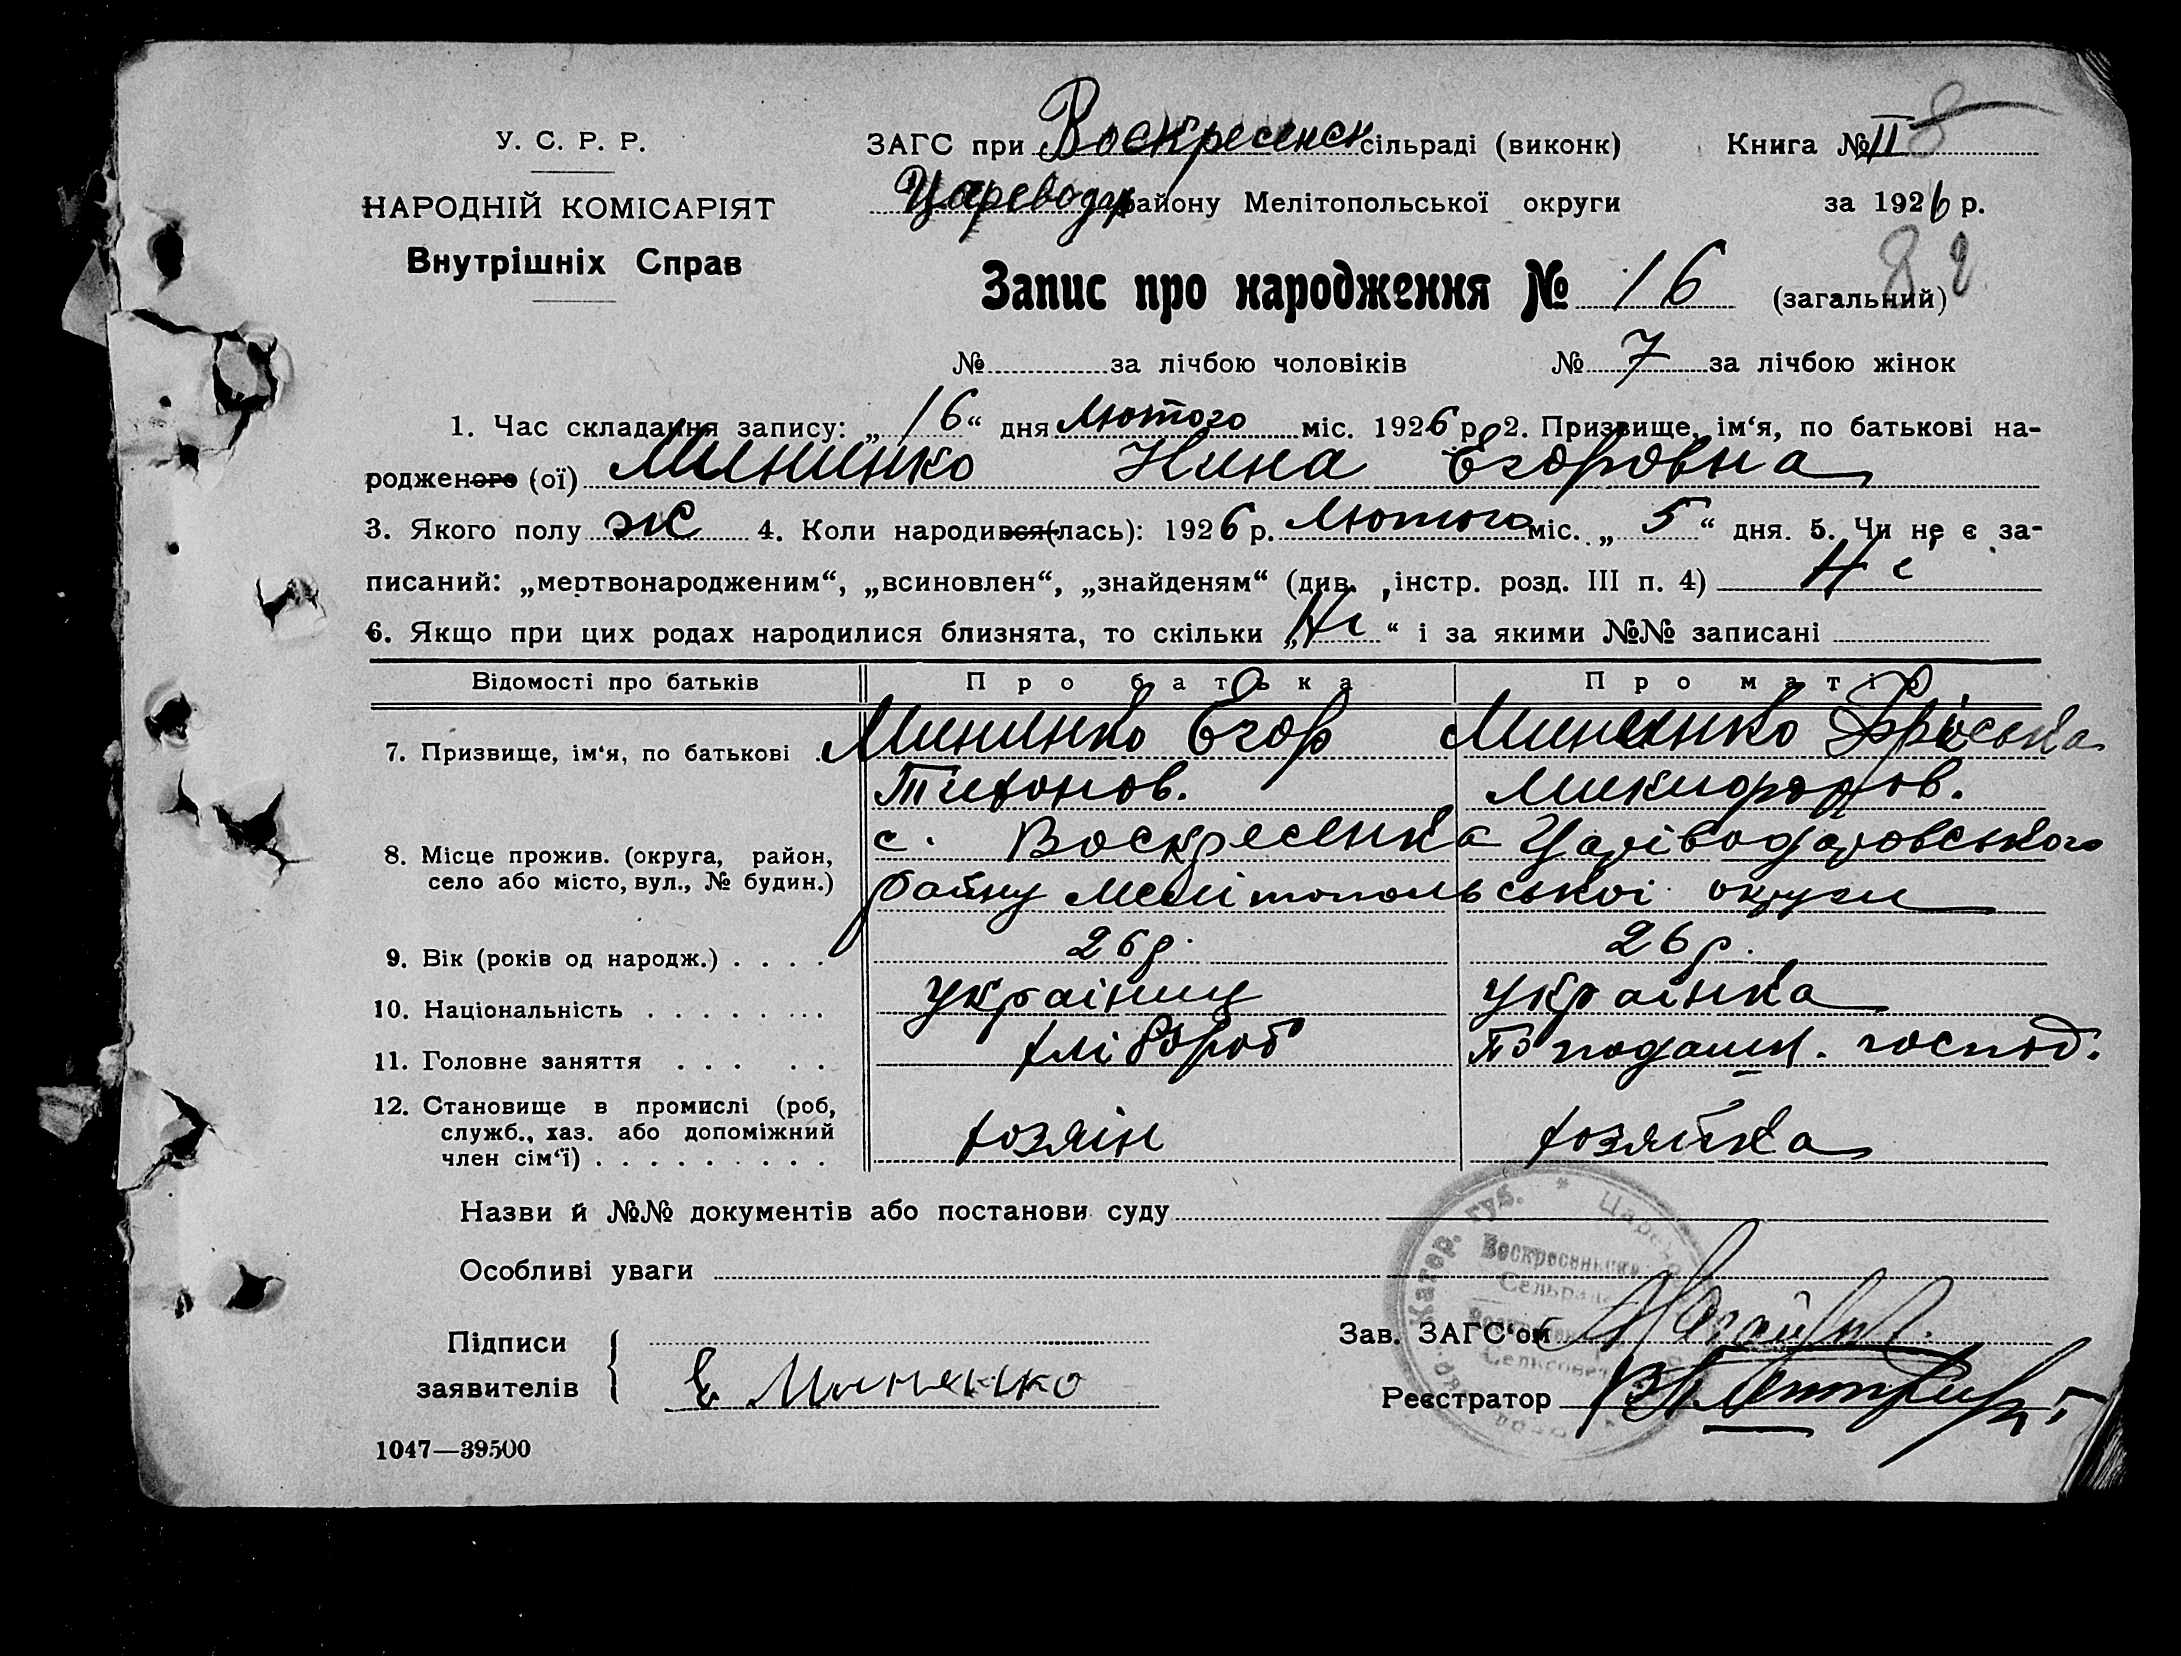 У. С. Р. Р.
НАРОДНІЙ КОМІСАРІЯТ
Внутрішніх Справ
ЗАГС при Воскресенск сільраді (виконк)
Цареводар району Мелітопольської округи
Книга № II 8
за 1926 р.
82
Запис про народження № 16 (загальний)
№ за лічбою чоловіків № 7 за лічбою жінок
1. Час складання запису: „16“ дня Лютого міс. 1926 р. 2. Призвище, ім‘я, по батькові на-
родженого (ої) Мининко Нина Егоровна
3. Якого полу ж 4. Коли народився(лась): 1926 р. Лютого міс. „5“ дня. 5. Чи не є за-
писаний: „мертвонародженим“, „всиновлен“, „знайденям“ (див. ,інстр. розд. III п. 4) Ні
6. Якщо при цих родах народилися близнята, то скільки „Ні“ і за якими №№ записані
Відомості про батьків Про батька Про матір
7. Призвище, ім‘я, по батькові . Мининко Егор Мининко Фріська
Тихонов. Микифоров.
8. Місце прожив. (округа, район, с. Воскресенка Царіводаровського
село або місто, вул., № будин.) району Мелітопольської округи
9. Вік (років од народж.) . . . . 26 р. 26 р.
10. Національність . . . . . . . . українец українка
11. Головне заняття . . . . . хлібороб По подашн. господ.
12. Становище в промислі (роб,
служб., хаз. або допоміжний хозяін хозяйка
член сім‘ї) . . . . . . . . .
Назви й №№ документів або постанови суду
Особливі уваги
Катор. губ. * Царев
Воскресеньска
Сельрада
Сельсовет
Підписи
заявителів
Е Миненко
Зав. ЗАГС‘ом
Реєстратор
1047—39500